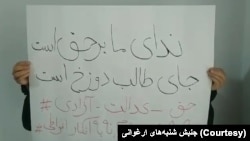 ندای ما بر حق است
جای طالب دوزخ است
حق - عدالت - آزادی #
جنبش شنبه‌های ارغوانی (Courtesy)